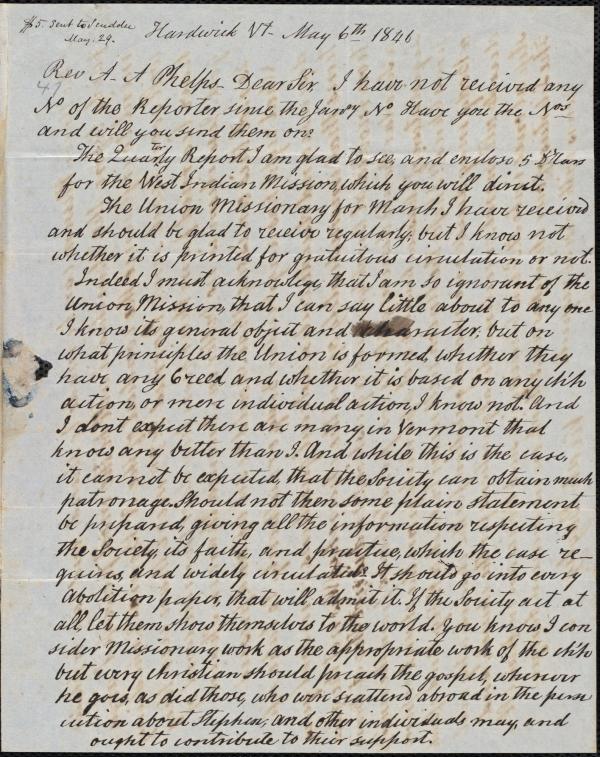 $5. sent to Scudder
May. 29.
Hardwick Vt. May 6th 1846
Rev A. A Phelps Dear Sir, I have not recieved any
No of the Reporter since the Jany No Have you the Nos
and will you send them on?
The Quarterly Report I am glad to see, and enclose 5 Dollars
for the West Indian Mission, which you will direct.
The Union Missionary for March I have recieved
and should be glad to receive regularly, but I know not
whether it is printed for gratuitous circulation or not.
Indeed I must acknowlege, that I am so ignorant of the
Union Mission, that I can say little about to any one
I know its general object and character, but on
what principles the Union is formed, whether they
have any Creed and whether it is based on any chh
action, or mere individual action, I know not. And
I dont expect there are many in Vermont that
know any better than I. And while this is the case,
it cannot be expected, that the Society can obtain much
patronage. Should not then some plain statement
be prepared, giving all the information respecting
the Society, its faith, and practice, which the case re-
quires, and widely circulated? It should go into every
abolition paper, that will admit it. If the Society act at
all, let them show themselves to the world. You know I con
sider Missionary work as the appropriate work of the chh
but every christian should preach the gospel, wherever
he goes, as did those, who were scattered abroad in the perse
cution about Stephen, and other individuals may, and
ought to contribute to their support.